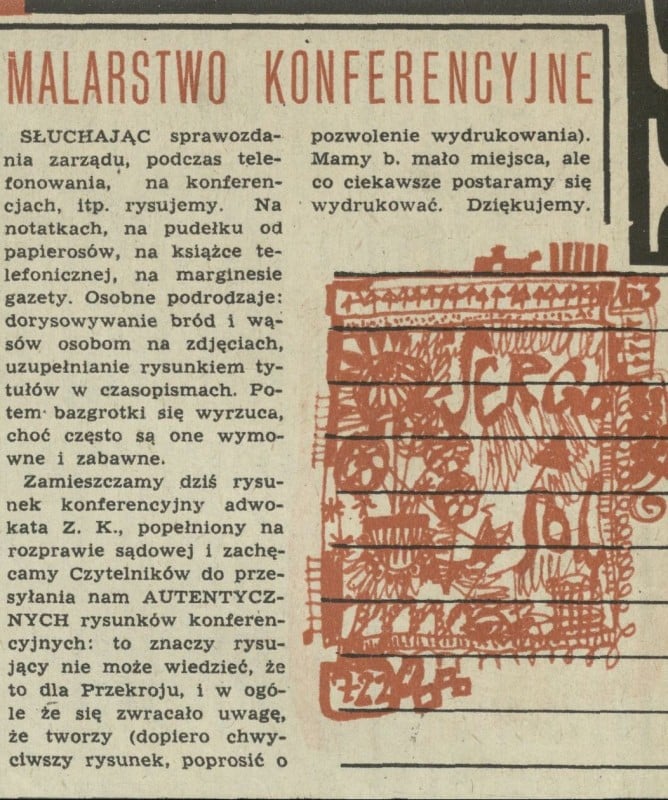 MALARSTWO KONFERENCYJNE
SŁUCHAJĄC sprawozda-
nia zarządu, podczas tele-
fonowania, na konferen-
cjach, itp. rysujemy. Na
notatkach, na pudełku od
papierosów, na książce te-
lefonicznej, na marginesie
gazety. Osobne podrodzaje:
dorysowywanie bród i wą-
sów osobom na zdjęciach,
uzupełnianie rysunkiem ty-
tułów w czasopismach. Po-
tem bazgrotki się wyrzuca,
choć często są one wymo-
wne i zabawne.
Zamieszczamy dziś rysu-
nek konferencyjny adwo-
kata Z. K., popełniony na
rozprawie sądowej i zachę-
camy Czytelników do prze-
syłania nam AUTENTYCZ-
NYCH rysunków konferen-
cyjnych: to znaczy rysu-
jący nie może wiedzieć, że
to dla Przekroju, i w ogó-
le że się zwracało uwagę,
że tworzy (dopiero chwy-
ciwszy rysunek, poprosić o
pozwolenie wydrukowania).
Mamy b. mało miejsca, ale
co ciekawsze postaramy się
wydrukować. Dziękujemy.
63
SERGO